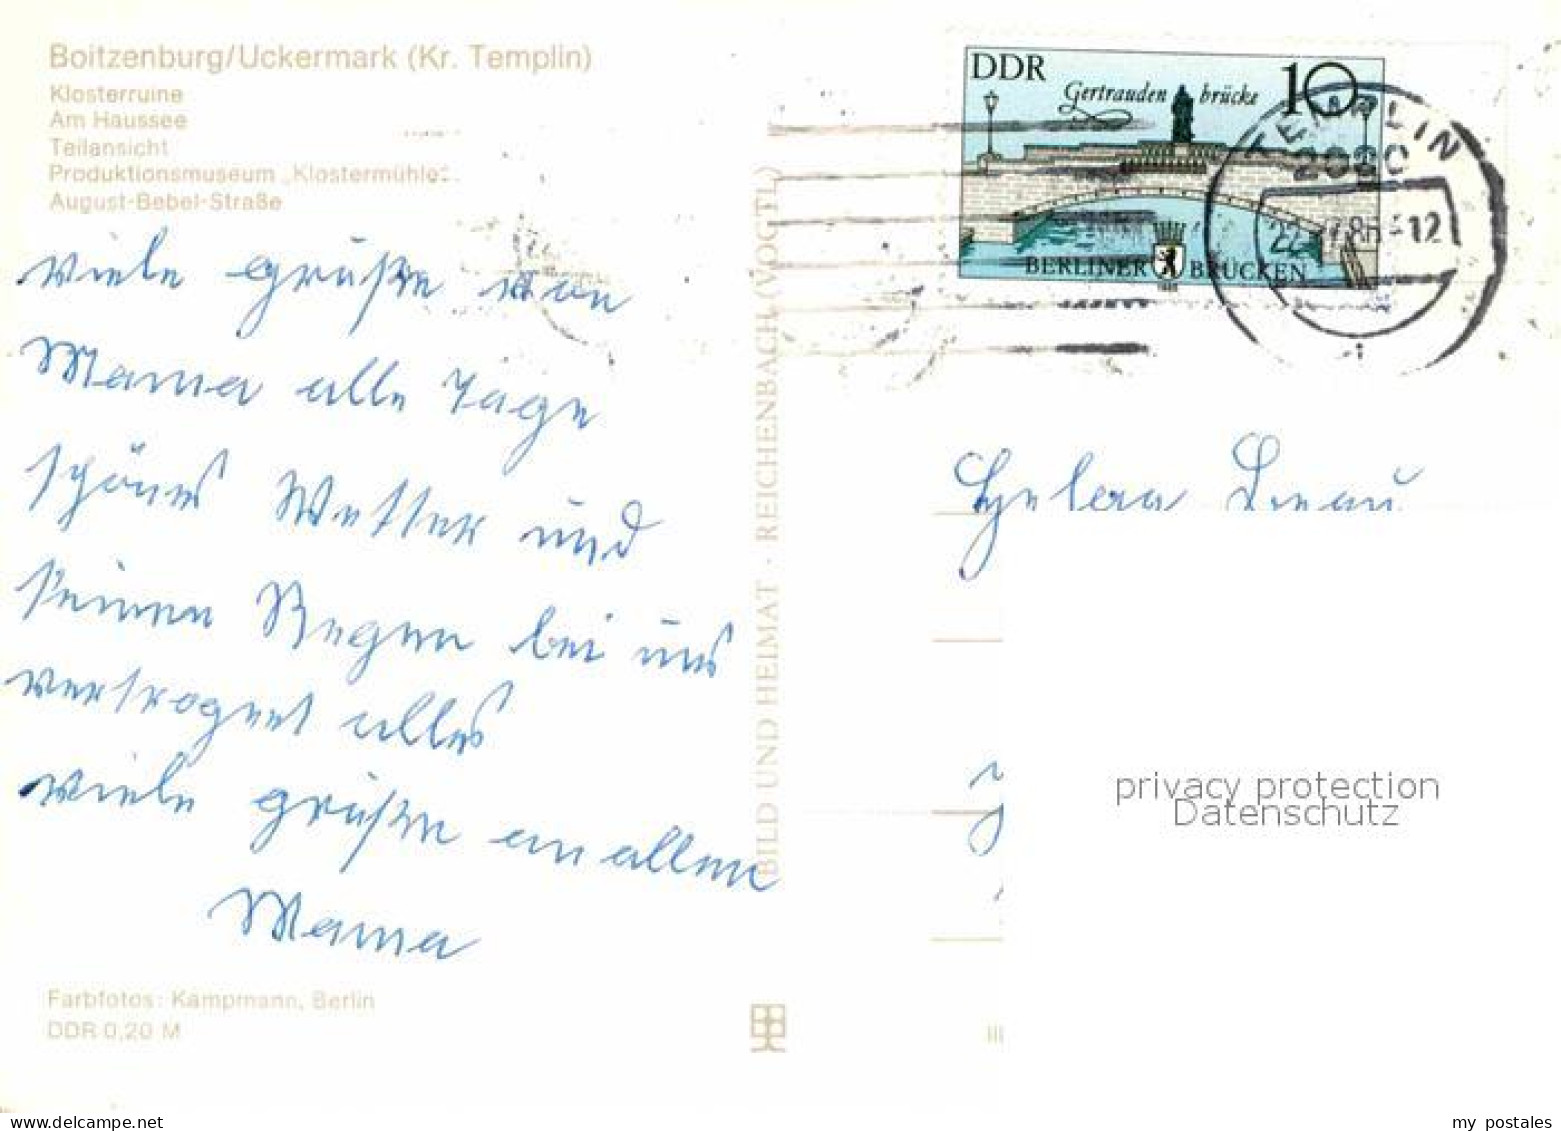 Boitzenburg/Uckermark (Kr. Templin)
Klosterruine
Am Haussee
Teilansicht
Produktionsmuseum „Klostermühle“
August-Bebel-Straße
viele grüße von
Mama alle Tage
schönes Wetter und
keinen Regen bei uns
alles
viele grüße an allen
Mama
Farbfotos: Kampmann, Berlin
DDR 0,20 M
BILD UND HEIMAT · REICHENBACH (VOGTL)
DDR
Gertrauden brücke
10
BERLINER BRÜCKEN
TEMPLIN
2090
12
privacy protection
Datenschutz
my postales